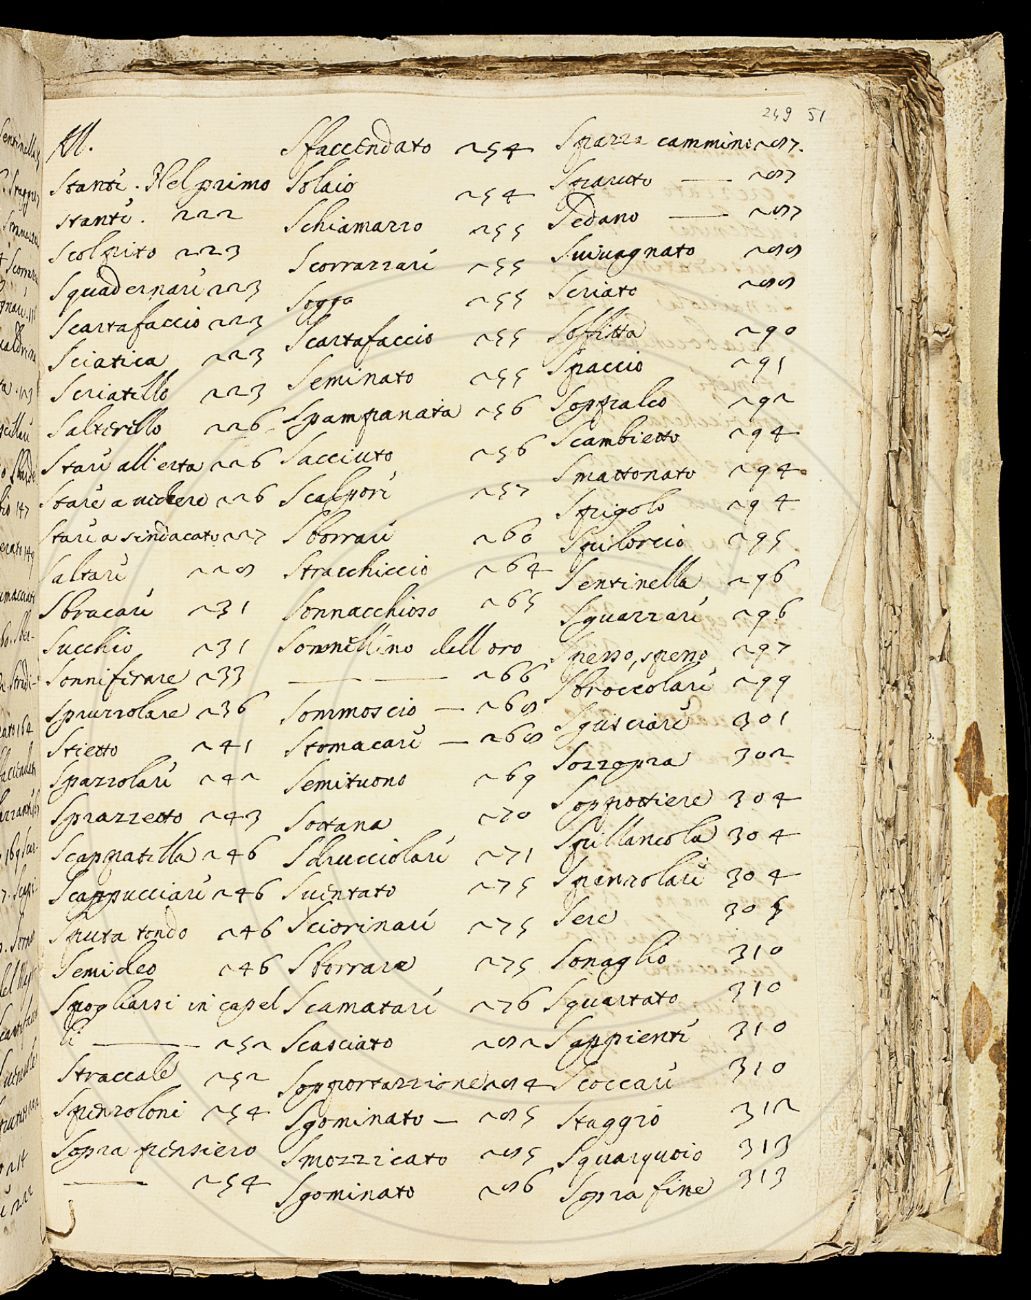 249 51
All.
Stanti. Nel primo
stanti. 222
Scolpito 223
Squadernari 223
Scartafaccio 223
Sciatica 223
Scriatillo 223
Salterillo 226
Stari all'erta 226
Stare a vedere 226
Stari a sindacato 227
Saltari 228
Sbracari 231
Succhio 231
Sonniferare 233
Spruzzolare 236
Stietto 241
Spazzolari 242
Sprazzetto 243
Scappatella 246
Scappucciari 246
Sputa tondo 246
Semideo 246
Spogliarsi in capel
li — 252
Straccale 252
Spenzoloni 254
Sopra pensiero
— 254
Sfaccendato 254
Solaio 254
Schiamazzo 255
Scorrazzari 255
Sogga 255
Scartafaccio 255
Seminato 255
Spampanata 256
Sacciuto 256
Scalpori 257
Sborrari 260
Stracchiccio 264
Sonnacchioso 265
Sommellino dell oro
— — 266
Sommoscio — 268
Stomacari — 268
Semituono 269
Sottana 270
Sdrucciolari 271
Sventato 275
Sciorinari 275
Sborrare 275
Scamatari 276
Scasciato 282
Sopportazzione 284
Sgominato — 285
Smozzicato 285
Sgominato 286
Spazza cammino 287.
Sparuto — 287
Sedano — 287
Svivagnato 288
Scriato 288
Soffitta 290
Spaccio 291
Soppalco 292
Scambietto 294
Smattonato 294
Spigolo 294
Spilorcio 295
Sentinella 296
Squazzari 296
Spesso, spesso 297
Sbroccolari 299
Sgusciari 301
Sozzopra 302
Soppottiere 304
Spillancola 304
Spenzolari 304
Sere 305
Sonaglio 310
Squartato 310
Sappienti 310
Scoccari 310
Staggio 312
Squarquoio 313
Sopra fine 313